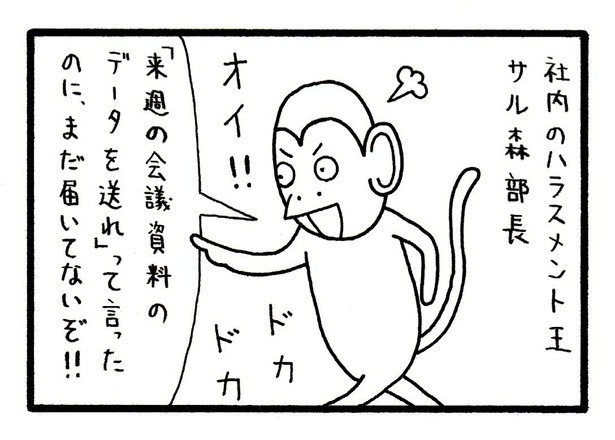 社内のハラスメント王
サル森部長
オイ!!
「来週の会議資料の
データを送れ」って言った
のに、まだ届いてないぞ!!
ドカ
ドカ